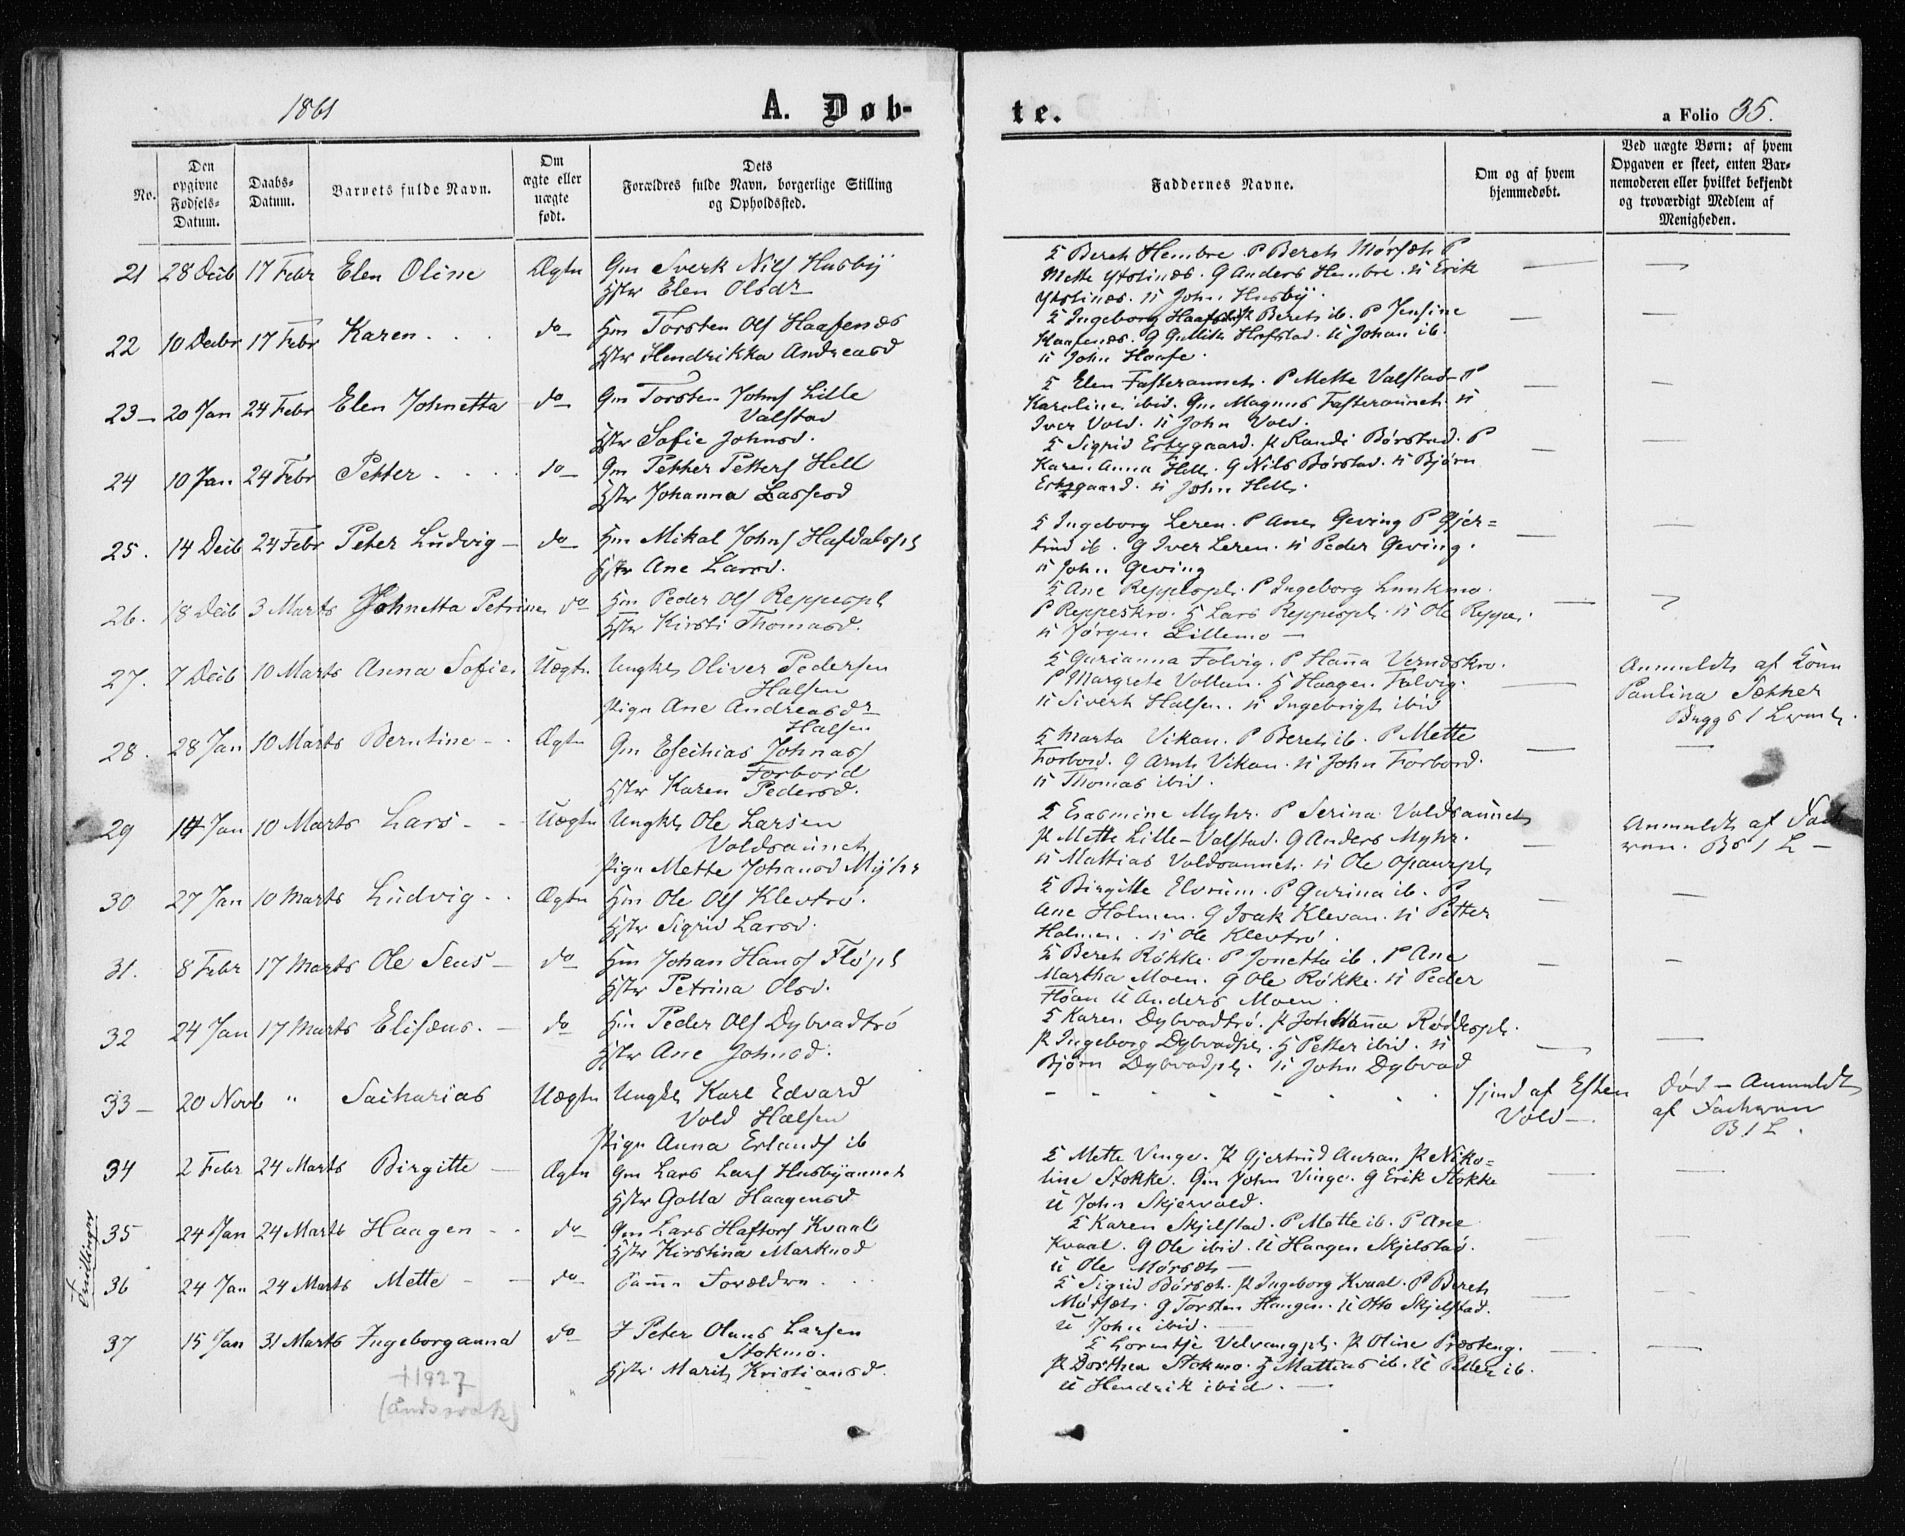 1861
A. Døb-
te.
a Folio 35.
No.
Den opgivne Fødsels-Datum.
Daabs-Datum.
Barnets fulde Navn.
Om ægte eller uægte født.
Dets
Forældres fulde Navn, borgerlige Stilling
og Opholdssted.
Faddernes Navne.
Om og af hvem
hjemmedøbt.
Ved uægte Børn: af hvem
Opgaven er skeet, enten Bar-
nemoderen eller hvilket bekjendt
og troværdigt Medlem af
Menigheden.
21 28 Decb 17 Febr Elen Oline Ægte Gm Sverk Nils Husby
Hstr Elen Olsdr
Beret Hembre. P Beret Mørsæt P
Mette Ystines. G Anders Hembre. U Erik
Ystines. U John Husby.
22 10 Decbr 17 Febr Karen do Hm Torsten Ols Haafenæs
Hstr Hendrikka Andreasd
Ingeborg Beret ib. P Jensine
Haafenæs. G Hofstad. U Johan ib.
U John Haafe.
23 20 Jan 24 Febr Elen Johnetta do Gm Torsten Johns Lille
Valstad
Hstr Sofie Johnsd.
Elen Fasteraunet. P Mette Valstad P
Karoline ibid. Gm Magnus Fasteraunet. U
Iver Vold. U John Vold.
24 10 Jan 24 Febr Petter do Gm Petter Petters Hell
Hstr Johanna Lassesd
Sigrid Ertsgaard. P Randi Børstad. P
Karen Anna Hell. G Nils Børstad. U Bjørn
Ertsgaard. U John Hell.
25. 14 Decb 24 Febr Peter Ludvig do Hm Mikal Johns Hafdalspl
Hstr Ane Larsd.
Ingeborg Leren. P Ane Geving P Gjer=
trud ib. G Iver Leren. U Peder Geving.
U John Geving
26. 18 Decb 3 Marts Johnetta Petrine do Hm Peder Ols Reppespl
Hstr Kirsti Thomasd.
Ane Reppespl. P Ingeborg Lunkmo.
P Reppeskro. G Lars Reppespl. U Ole Reppe.
U Jørgen Lillemo
27. 7 Decb 10 Marts Anna Sofie Uægte Ungkl Oliver Pedersen
Halsen
Pige Ane Andreasdr
Halsen
Gurianna Folvig. P Hanna Vernæskro.
P Margrete Vollan. G Haagen Folvig.
U Sivert Halsen. U Ingebrigt ibid
Anmeldt af
Paulina Petter
28. 28 Jan 10 Marts Berntine Ægte Gm Esechias Johnas
Forbord
Hstr Karen Pedersd.
Marta Vikan. P Beret ib. P Mette
Forbord. G Arnt Vikan. U John Forbord.
U Thomas ibid.
29 14 Jan 10 Marts Lars Uægte Ungkl Ole Larsen
Voldsaunet
Pige Mette Johansd Myhr
Erasmine Myhr. P Serina Voldsaunet
P Mette Lille-Valstad. G Anders Myhr.
U Mattias Voldsaunet. U Ole
Anmeldt af
30 27 Jan 10 Marts Ludvig Ægte Hm Ole Ols Klevtrø.
Hstr Sigrid Larsd.
Birgitte Elvrum. P Gurina ib. P
Ane Holmen. G Isak Klevan. U Petter
Holmen. U Ole Klevtrø.
31. 8 Febr 17 Marts Ole Jens do Hm Johan Hans Fløpl
Hstr Petrina Olsd.
Beret Røkke. P Jonetta ib. P Ane
Martha Moen. G Ole Røkke. U Peder
Fløan U Anders Moen.
32 24 Jan 17 Marts Elisæus. do Hm Peder Ols Dybvadtrø
Hstr Ane Johnsd.
Karen Dybvadtrø. P Johanna Røddespl.
P Ingeborg Dybvadpl. G Petter ibid. U
Bjørn Dybvadpl. U John Dybvad
33 20 Novb " Sacharias Uægte Ungkl Karl Edvard
Vold Halsen
Pige Anna Erlands ib
Hjemd af Esten
Vold
Død - Anmeldt
af
34 2 Febr 24 Marts Birgitte Ægte Gm Lars Lars Husbyaunet
Hstr Golla Haagensd
Mette Vinge. P Gjertrud Auran P Niko=
line Stokke. Gm John Vinge. G Erik Stokke
U John Skjervold.
Tvillinger
35 24 Jan 24 Marts Haagen do Gm Lars Haftors Kvaal
Hstr Kirstina Marknsd
Karen Skjelstad. P Mette ib. P Ane
Kvaal. G Ole ibid. U Haagen Skjelstad.
U Ole Mørsæt
36 24 Jan 24 Marts Mette do Samme Forældre
Sigrid Børsæt. P Ingeborg Kvaal. P Beret
Mørsæt. G Torsten Haugen. U Otto Skjelstad.
U John ibid.
37 15 Jan 31 Marts Ingeborganna do I Peter Olaus Larsen
Stokmo.
Hstr. Marit Kristiansd.
Lorentse Velvangpl. P Oline Præsteng.
P Dorthea Stokmo. G Mattias ib. U Petter ib.
U Hendrik ibid.
+1927
(Åndssvak)